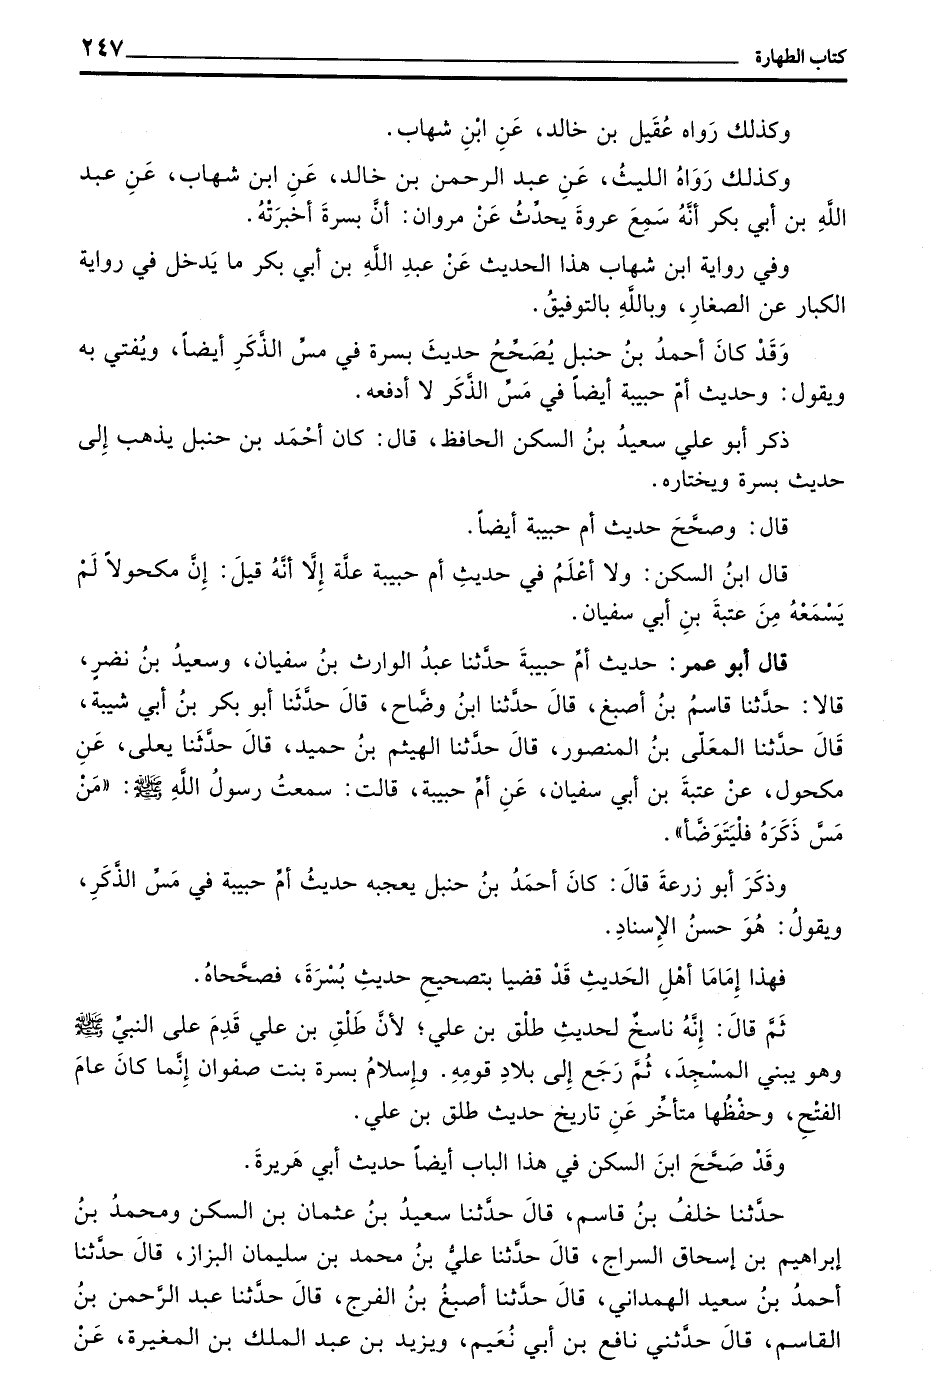 كتاب الطهارة ٢٤٧
وكذلك رَواه عُقَيل بن خالد، عَنِ ابْنِ شهاب.
وكذلك رَوَاهُ الليثُ، عَنِ عبد الرحمن بن خالد، عَنِ ابن شهاب، عَنِ عبد
اللَّهِ بن أبي بكر أنَّهُ سَمِعَ عروةَ يحدِّثُ عَنْ مروان: أنَّ بسرةَ أخبرَتْهُ.
وفي رواية ابن شهاب هذا الحديث عَنْ عبدِ اللَّهِ بن أبي بكر ما يَدخل في رواية
الكبار عن الصغارِ، وباللَّهِ بالتوفيقُ.
وَقَدْ كانَ أحمدُ بنُ حنبل يُصَحِّحُ حديثَ بسرة في مسِّ الذَّكَرِ أيضاً، ويُفتي به
ويقول: وحديث أمّ حبيبة أيضاً في مَسِّ الذَّكَر لا أدفعه.
ذكر أبو علي سعيدُ بنُ السكن الحافظ، قال: كان أحْمَد بن حنبل يذهب إلى
حديث بسرة ويختاره.
قال: وصحَّحَ حديث أم حبيبة أيضاً.
قال ابنُ السكن: ولا أعْلَمُ في حديثِ أم حبيبة علَّة إلَّا أنَّهُ قيلَ: إنَّ مكحولاً لَمْ
يَسْمَعْهُ مِنَ عتبةَ بنِ أبي سفيان.
قال أبو عمر: حديث أمِّ حبيبةَ حدَّثنا عبدُ الوارث بنُ سفيان، وسعيدُ بنُ نضرٍ،
قالا: حدَّثنا قاسمُ بنُ أصبغ، قالَ حدَّثنا ابنُ وضَّاح، قالَ حدَّثَنا أبو بكر بنُ أبي شيبة،
قَالَ حدَّثنا المعَلّى بنُ المنصور، قالَ حدَّثنا الهيثم بنُ حميد، قالَ حدَّثَنا يعلى، عَنِ
مكحول، عنْ عتبةَ بن أبي سفيان، عَنِ أمِّ حبيبة، قالت: سمعتُ رسولُ اللَّهِ ﷺ: «مَنْ
مَسَّ ذَكَرَهُ فلْيَتَوَضَّأ».
وذكَرَ أبو زرعةَ قالَ: كانَ أحمَدُ بنُ حنبل يعجبه حديثُ أمِّ حبيبة في مَسِّ الذَّكَرِ،
ويقولُ: هُوَ حسنُ الإسنادِ.
فهذا إمَامَا أهْلِ الحَديثِ قَدْ قضيا بتصحيحِ حديثِ بُسْرَةَ، فصحَّحاهُ.
ثَمَّ قالَ: إنَّهُ ناسخٌ لحديثِ طلْق بن علي؛ لأنَّ طَلْقِ بن علي قَدِمَ على النبيِّ ﷺ
وهو يبني المسْجِدَ، ثُمَّ رَجَع إلى بلادِ قومِهِ. وإسلامُ بسرة بنت صفوان إنَّما كانَ عامَ
الفتْحِ، وحفْظُها متأخِّر عَنِ تاريخ حديث طلق بن علي.
وقَدْ صَحَّحَ ابنَ السكن في هذا الباب أيضاً حديث أبي هَريرةَ.
حدَّثنا خلفُ بنُ قاسم، قالَ حدَّثنا سعيدُ بنُ عثمان بن السكن ومحمدُ بنُ
إبراهيم بن إسحاق السراج، قالَ حدَّثنا عليُّ بنُ محمد بن سليمان البزاز، قالَ حدَّثنا
أحمدُ بنُ سعيد الهمداني، قالَ حدَّثنا أصبغُ بنُ الفرج، قالَ حدَّثنا عبد الرَّحمن بنُ
القاسم، قالَ حدَّثني نافع بن أبي نُعَيم، ويزيد بن عبد الملك بن المغيرة، عَنْ